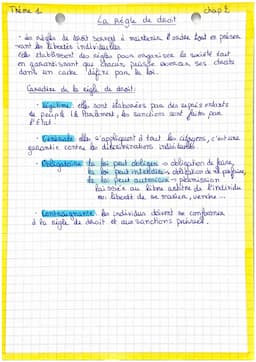 Thème 1 chap 2
La Règle de droit
• les règles de droit servent à maintenir l'ordre tout en préser
vant les libertés individuelles.
elle établissent des règles pour organiser la société tout
en garantissant que chacun puisse exercer ses droits
dans un cadre défini par la loi.
Caractère de la règle de droit.
• Légitime: elles sont élaborées par des représentants
du peuple (le Parlement), les sanctions sont faites par
l'État.
• Générale: elle s'appliquent à tout les citoyens, c'est une
garantie contre les discriminations individuelles.
• Obligatoire: la loi peut obliger → obligation de faire,
la loi peut interdire → obligation de ne pas faire,
la loi peut autoriser → permission
laissée au libre arbitre de l'individu
ex: liberté de se marier, vendre ...
• Contraignante: les individus doivent se conformer
à la règle de droit et aux sanctions prévues.